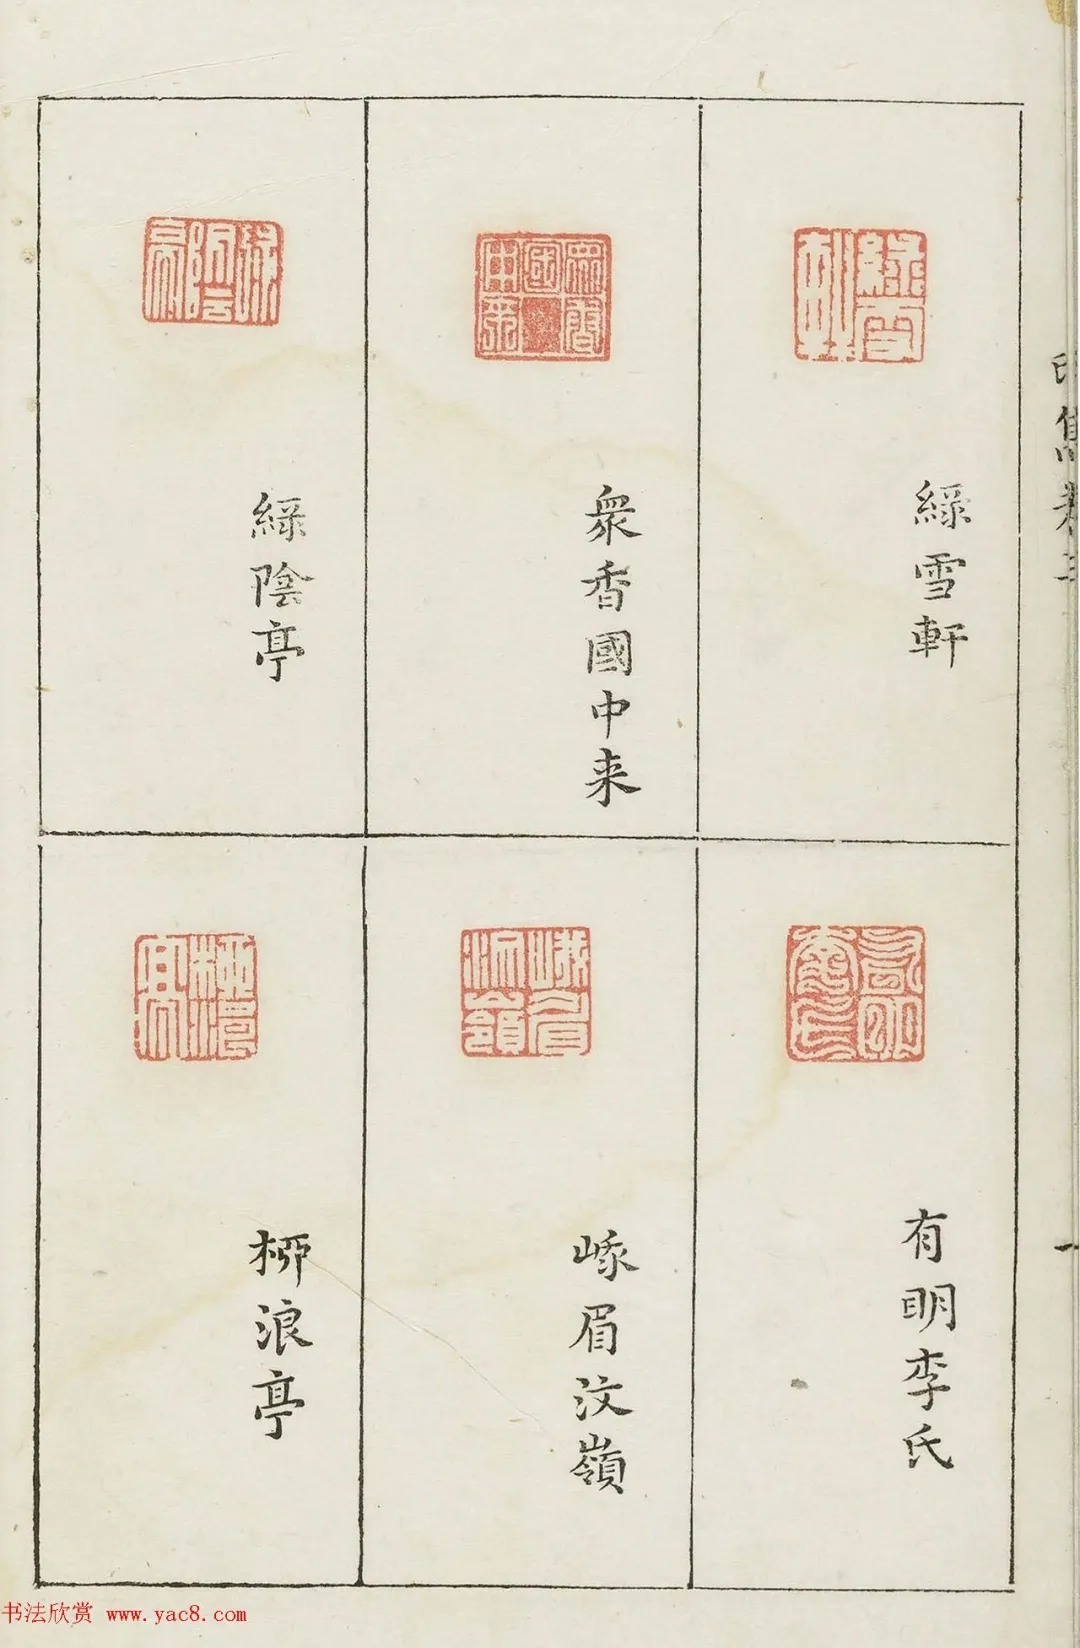 綠雪軒
眾香國中来
綠陰亭
有明李氏
峨眉汶嶺
柳浪亭
书法欣赏 www.yac8.com